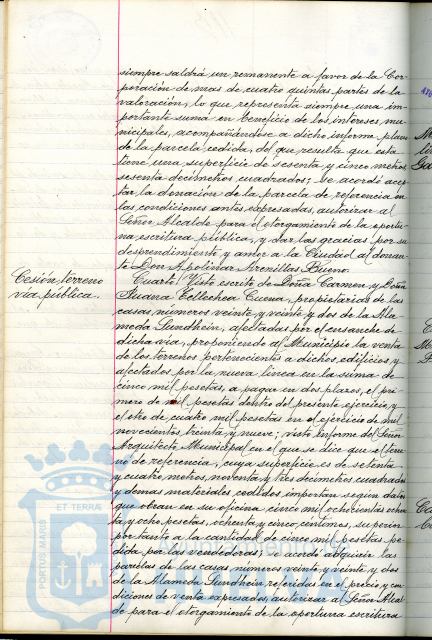 siempre saldrá un remanente a favor de la Cor-
poración de mas de cuatro quintas partes de la
valoración, lo que representa siempre una im-
portante suma en beneficio de los intereses mu-
nicipales, acompañándose a dicho informe plano
de la parcela cedida, del que resulta que esta
tiene una superficie de sesenta y cinco metros
sesenta decímetros cuadrados; se acordó acep-
tar la donación de la parcela de referencia en
las condiciones antes expresadas, autorizar al
Señor Alcalde para el otorgamiento de la oportu-
na escritura pública, y dar las gracias por su
desprendimiento y amor a la Ciudad al donan-
te Don Apolinar Arenillas Bueno.
Cesión terreno
vía pública.
Cuarto: Visto escrito de Doña Carmen y Doña
Juana Tellechea Cuena, propietarias de las
casas números veinte y veinte y dos de la Ala-
meda Sundhein, afectadas por el ensanche de
dicha vía, proponiendo al Municipio la venta
de los terrenos pertenecientes a dichos edificios y
afectados por la nueva linea en la suma de
cinco mil pesetas, a pagar en dos plazos, el pri-
mero de mil pesetas dentro del presente ejercicio, y
el otro de cuatro mil pesetas en el ejercicio de mil
novecientos treinta y nueve; visto informe del Señor
Arquitecto Municipal en el que se dice que el terre-
no de referencia, cuya superficie es de setenta
y cuatro metros, noventa y tres decímetros cuadrados
y demas materiales cedidos importan según datos
que obran en su oficina cinco mil ochocientas ochen-
ta y ocho pesetas, ochenta y cinco céntimos, superior
por tanto a la cantidad de cinco mil pesetas pe-
dida por las vendedoras; se acordó adquirir las
parcelas de las casas números veinte y veinte y dos
de la Alameda Sundhein referidas en el precio y con-
diciones de venta expresados, autorizar al Señor Alcal-
de para el otorgamiento de la oportuna escritura
PORTUS MARIS
ET TERRAE